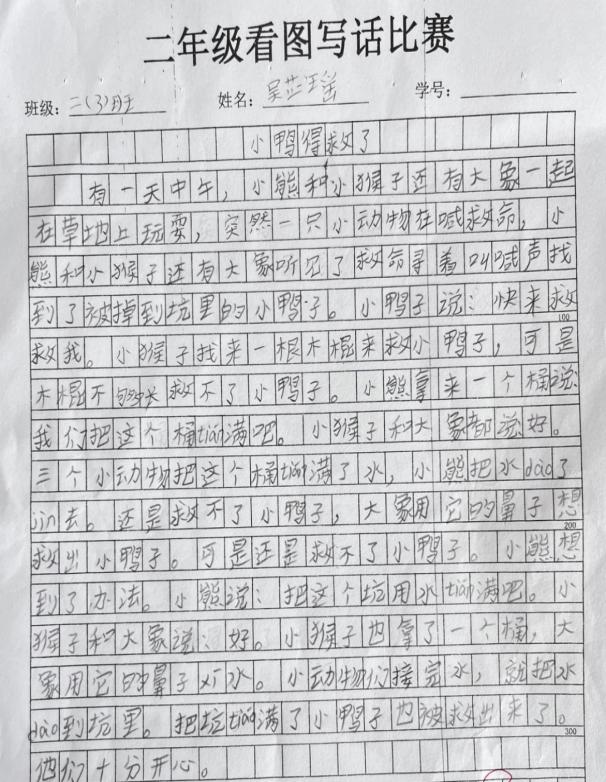 二年级看图写话比赛
班级：二(3)班 姓名：吴芷瑶 学号：
小鸭得救了
有一天中午，小熊和小猴子还有大象一起
在草地上玩耍，突然一只小动物在喊救命，小
熊和小猴子还有大象听见了救命寻着叫喊声找
到了被掉到坑里的小鸭子。小鸭子说：快来救
100
救我。小猴子找来一根木棍来救小鸭子，可是
木棍不够长救不了小鸭子。小熊拿来一个桶说
我们把这个桶tián满吧。小猴子和大象都说好。
三个小动物把这个桶tián满了水，小熊把水dào了
jìn去。还是救不了小鸭子，大象用它的鼻子想
200
救出小鸭子。可是还是救不了小鸭子。小熊想
到了办法。小熊说：把这个坑用水tián满吧。小
猴子和大象说：好。小猴子也拿了一个桶，大
象用它的鼻子xī水。小动物们接完水，就把水
dào到坑里。把坑tián满了小鸭子也被救出来了。
300
他们十分开心。